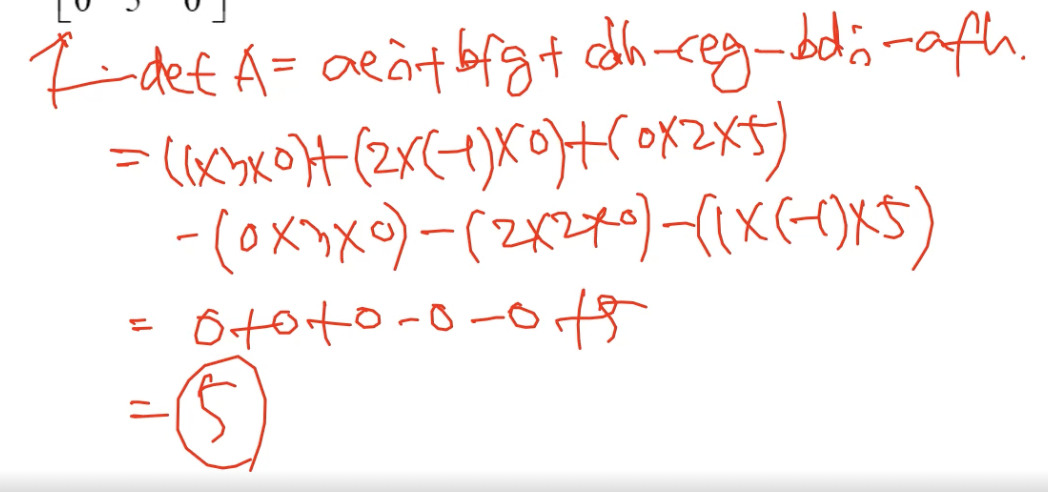 [0 5 0]
1. det A = aei + bfg + cdh - ceg - bdi - afh.
= (1×3×0)+(2×(-1)×0)+(0×2×5)
-(0×3×0)-(2×2×0)-(1×(-1)×5)
= 0+0+0-0-0+5
= 5